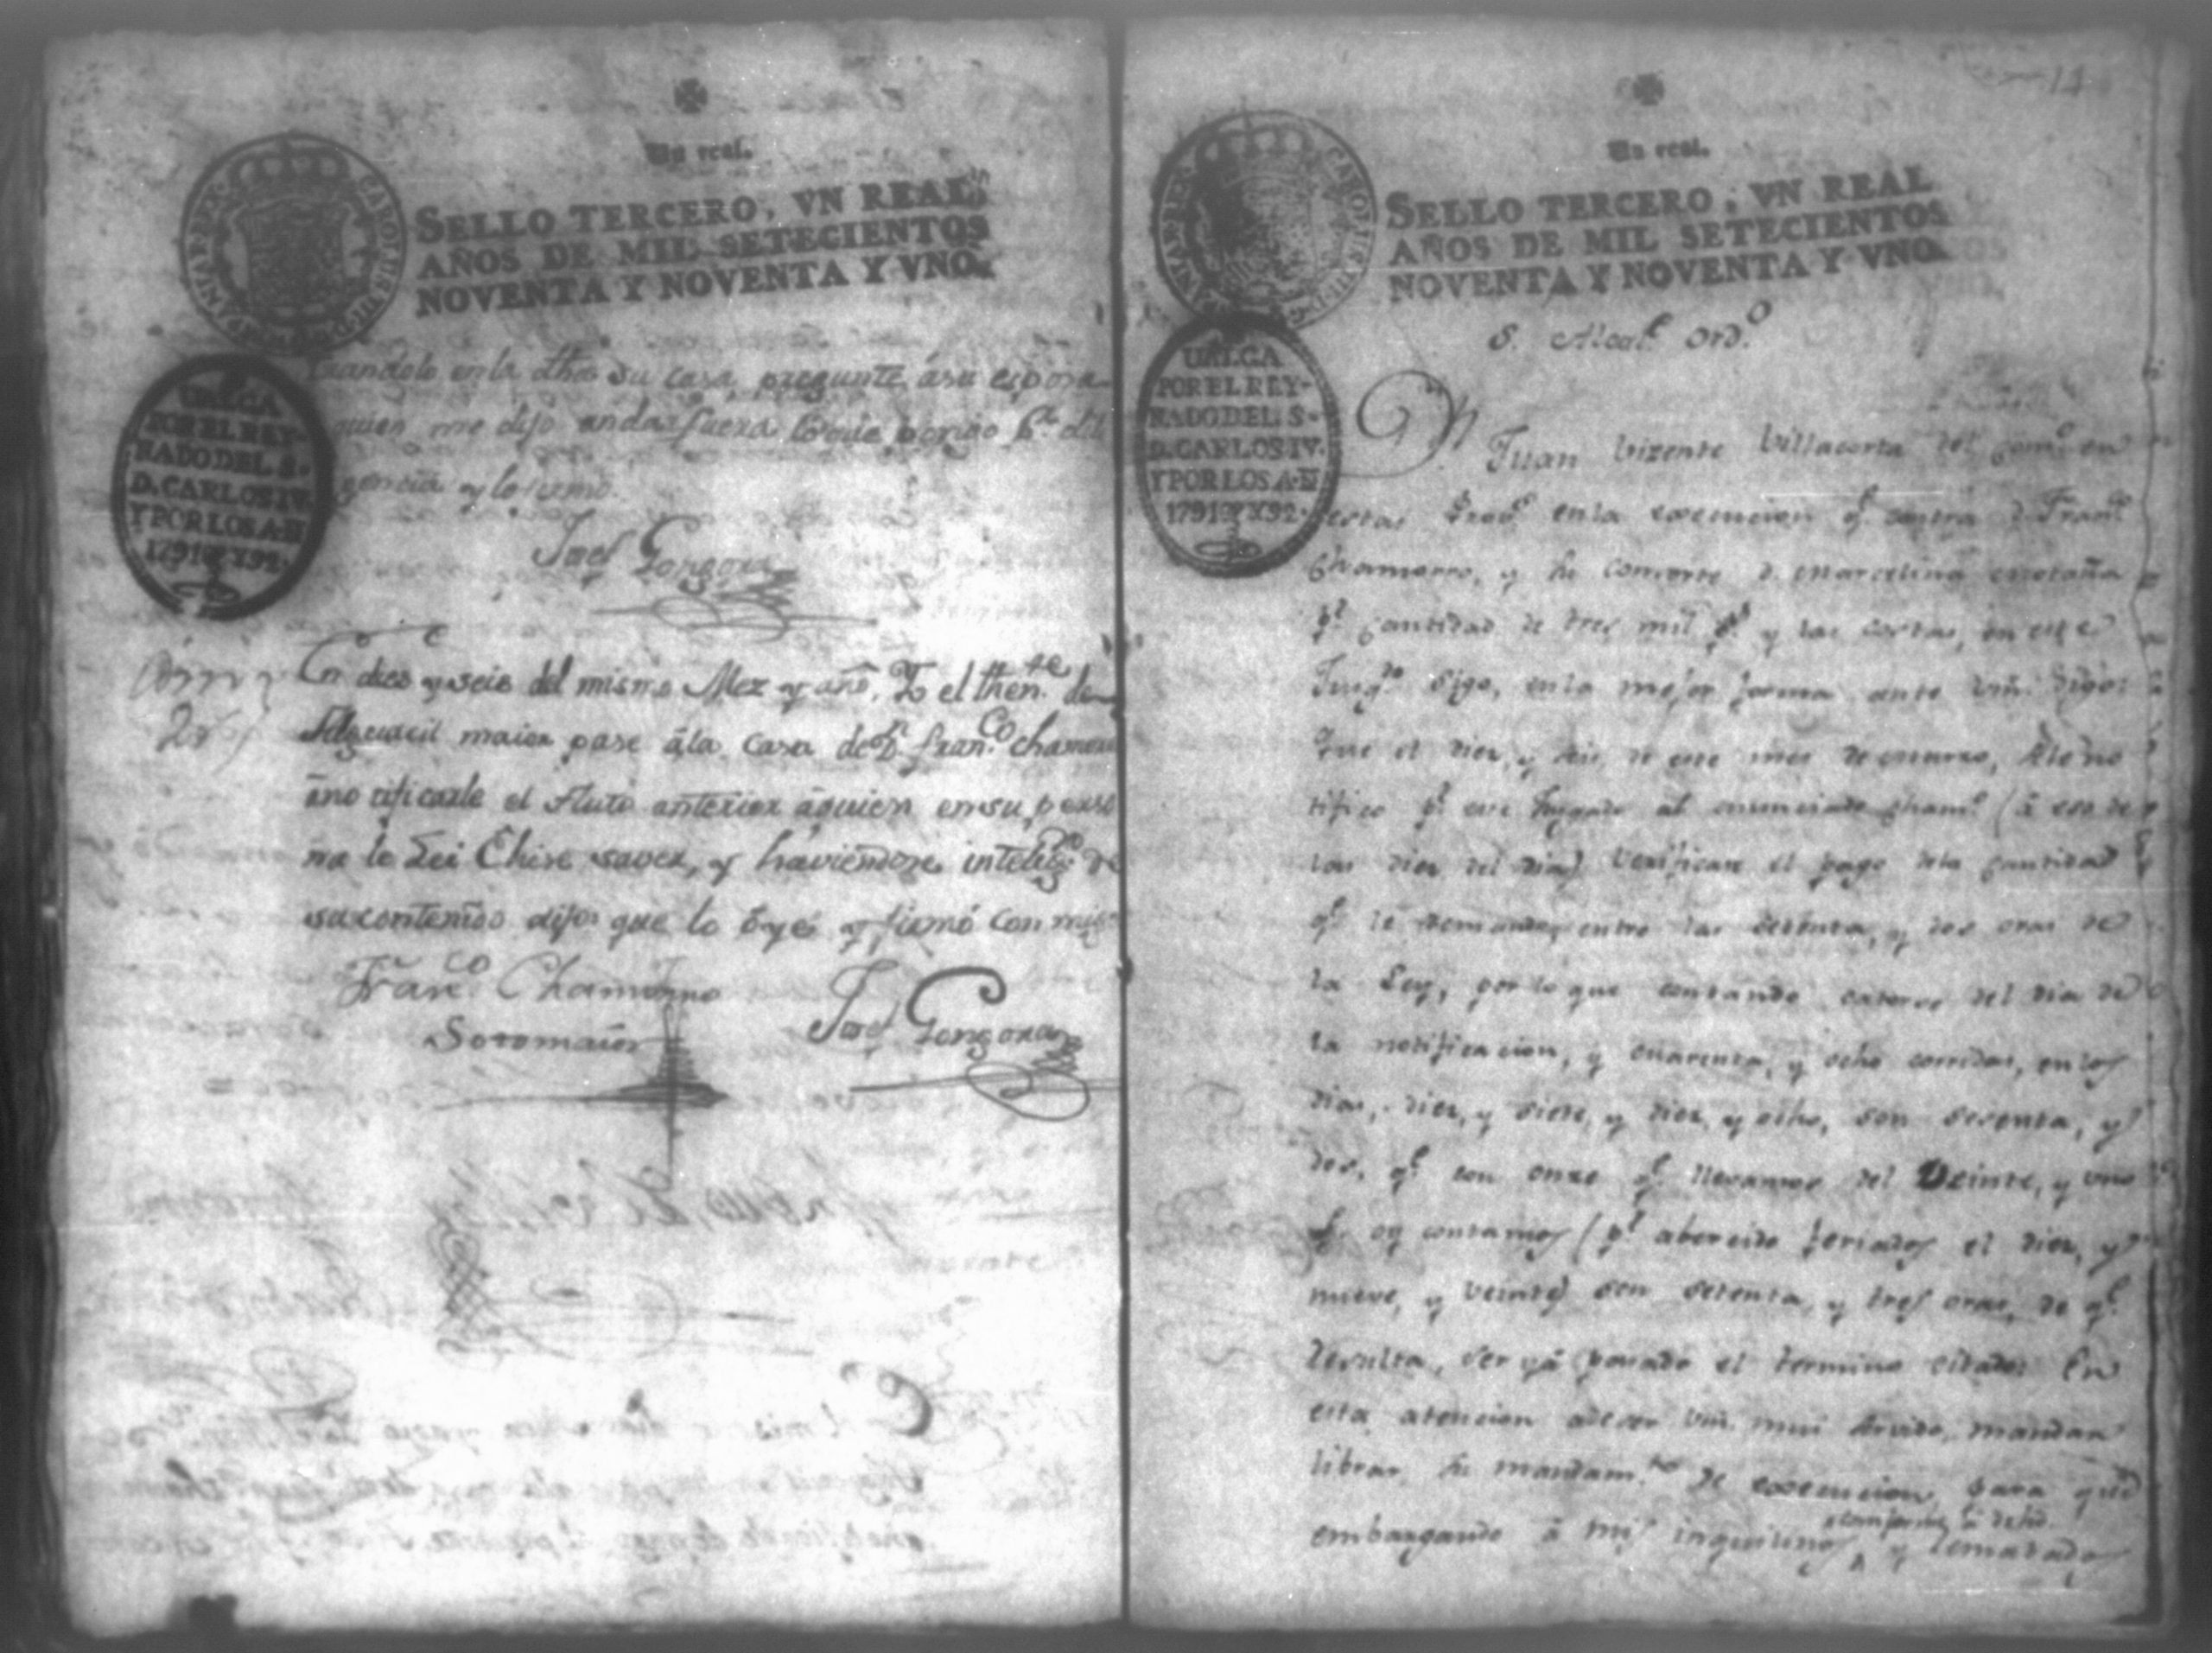 Un real.
SELLO TERCERO, VN REAL
AÑOS DE MIL SETECIENTOS
NOVENTA Y NOVENTA Y VNO.
VALGA
POR EL REY-
NADO DEL S.
D. CARLOS IV.
Y POR LOS A. D
1791 y 92.
en la dha su casa, pregunte á su esposa
quien me dijo andar fuera lo que pongo pr. dili
gencia y lo firmo.
Josef Gongora
En dies y seis del mismo Mez y año. Yo el thente. de
Alguacil maior pase á la casa de Dn. franco. chamorro
á notificarle el Auto anterior á quien en su perso
na le Lei é hise saver, y haviendose inteligdo. de
su contenido dijo: que lo óye y firmó conmigo
Franco. Chamorro
Sotomaior
Josef Gongora
14
Un real.
SELLO TERCERO, VN REAL
AÑOS DE MIL SETECIENTOS
NOVENTA Y NOVENTA Y VNO.
VALGA
POR EL REY-
NADO DEL S.
D. CARLOS IV.
Y POR LOS A. D
1791 y 92.
S. Alcale. Ordo.
Dn Juan Vizente Villacorta del Como. en
estas Provs. en la execucion qe. contra D. Franco.
Chamorro, y su consorte Da. Marcelina
pr. cantidad de tres mil ps. y las costas, en este
Juzgdo. sigo, en la mejor forma ante Vm. digo:
Que el diez, y seis de este mes de marzo, se le no
tifico pr. este Juzgado al enunciado Chamo. (á eso de
las diez del dia) verificase el pago de la cantidad
qe. le demando, entro las setenta, y dos oras de
la Ley, por lo que contando catorse del dia de
la notificacion, y cuarenta, y ocho corridas, en los
dias, diez, y siete, y diez, y ocho, son sesenta, y
dos, qe. con onze qe. llevamos del Veinte, y uno
qe. oy contamos (pr. aber sido feriados el diez, y
nueve, y veinte) son setenta, y tres oras, de qe.
resulta, ser yá pasado el termino citado: En
esta atencion á de ser Vm. mui servido, mandar
librar su mandamto. de execucion, para que
embargando á mis inquilinos, y rematados